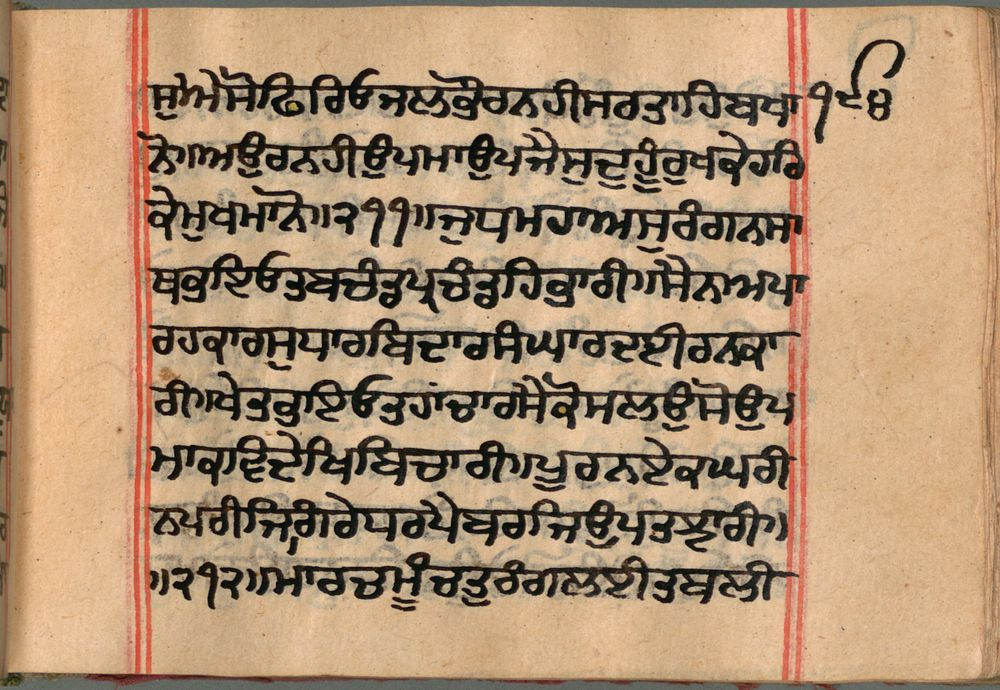 ਸੁਐਸੇਫਿਰਿਓਜਲਭੌਰਨਹੀਸਰਤਾਹਿਬਖਾ ੧੯੪
ਨੋ॥ਅਉਰਨਹੀਉਪਮਾਉਪਜੈਸੁਦੁਹੂੰਰੁਖਕੇਹਰਿ
ਕੇਮੁਖਮਾਨੋ॥੨੧੧॥ਜੁਧਮਹਾਅਸੁਰੰਗਨਸਾ
ਥਭਇਓਤਬਚੰਡਪ੍ਰਚੰਡਹਿਭਾਰੀ॥ਸੈਨਾਅਪਾ
ਰਹਕਾਰਸੁਧਾਰਬਿਦਾਰਸੰਘਾਰਦਈਰਨਕਾ
ਰੀ॥ਖੇਤਭਇਓਤਹਾਂਚਾਰਸੈਕੋਸਲਉਸੋਉਪ
ਮਾਕਵਿਦੇਖਿਬਿਚਾਰੀ॥ਪੂਰਨਏਕਘਰੀ
ਨਪਰੀਜਿਗਿਰੇਧਰਪੈਬਰਜਿਉਪਤਝਾਰੀ॥
॥੨੧੨॥ਮਾਰਚਮੂੰਚਤੁਰੰਗਲਈਤਬਲੀ